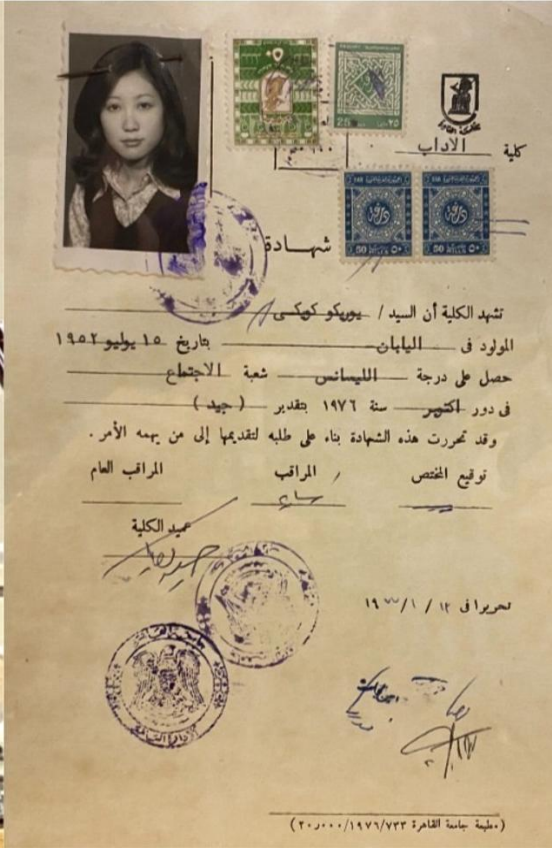 كلية الاداب
25
50
50
شهـــادة
تشهد الكلية أن السيد / يوريكو كويكى
المولود فى اليابان بتاريخ ١٥ يوليو ١٩٥٢
حصل على درجة الليسانس شعبة الاجتماع
فى دور اكتوبر سنة ١٩٧٦ بتقدير ( جيد )
وقد تحررت هذه الشهادة بناء على طلبه لتقديمها إلى من يهمه الأمر .
توقيع المختص المراقب المراقب العام
عميد الكلية
تحريرا فى ١٢ / ١ / ١٩٧٧
(مطبعة جامعة القاهرة ١٩٧٦/٧٣٣/٢٠٫٠٠٠)